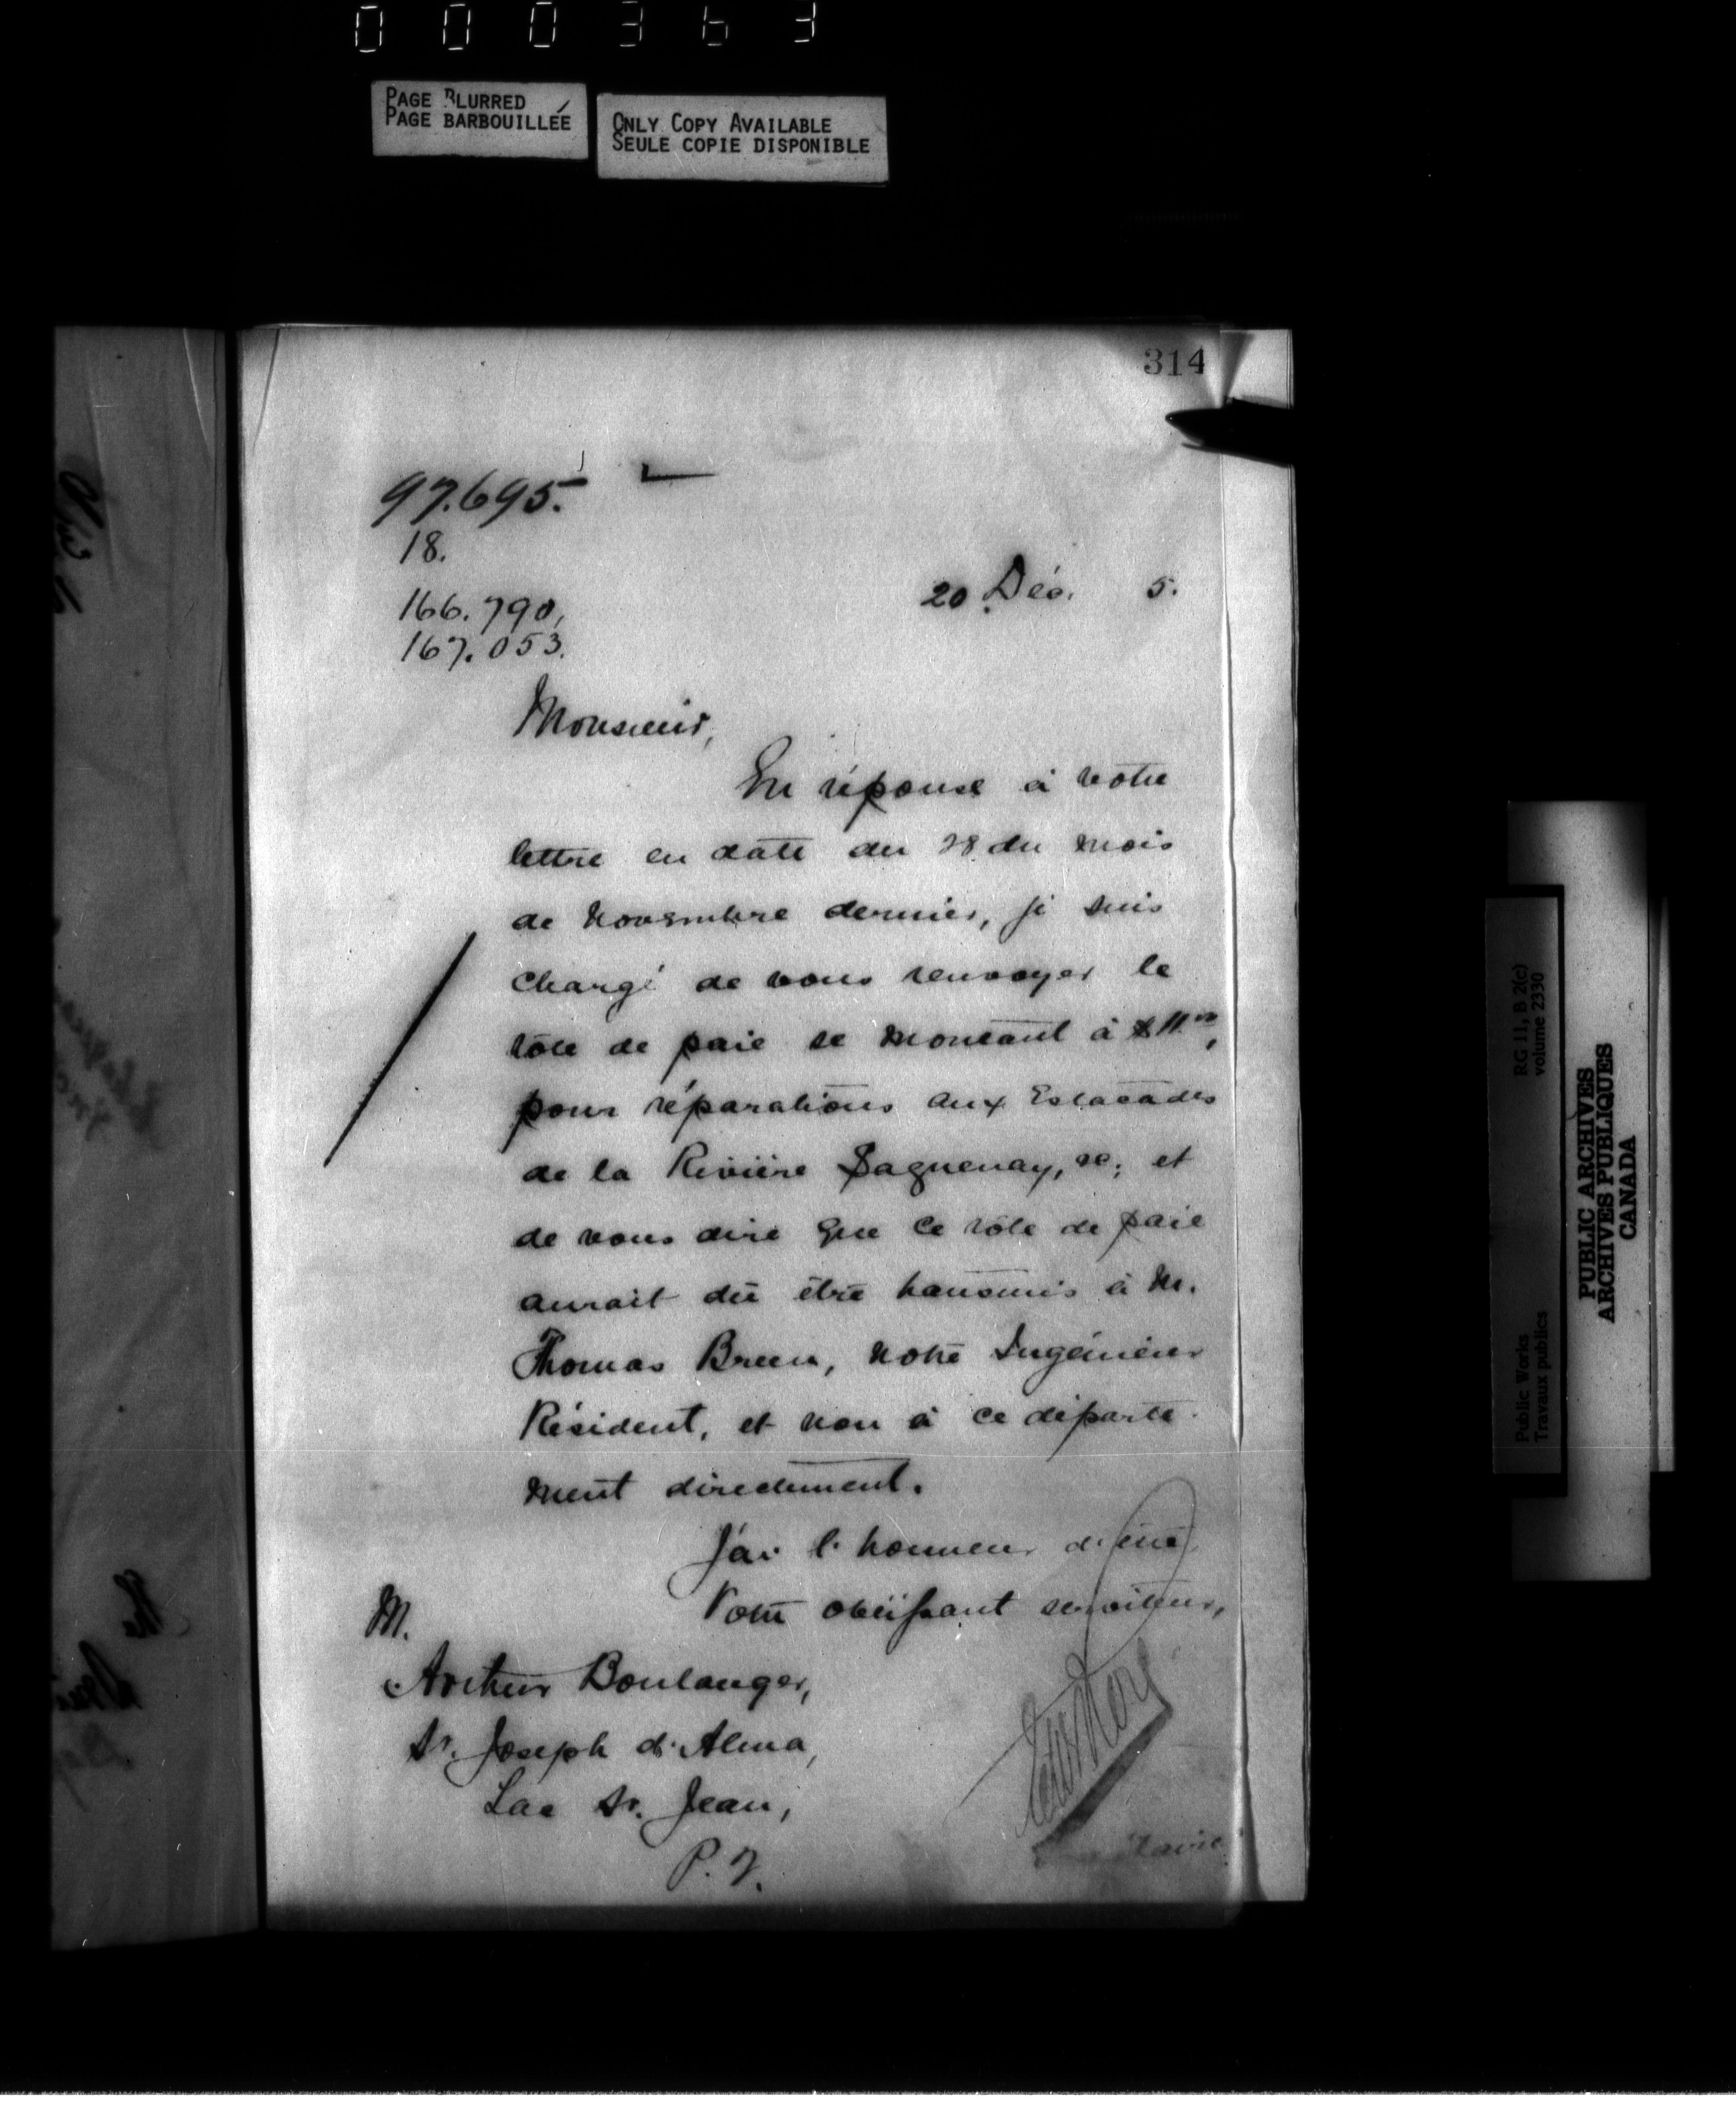 000363
PAGE BLURRED
PAGE BARBOUILLÉE
ONLY COPY AVAILABLE
SEULE COPIE DISPONIBLE
314
97.695.
18.
166.790,
167.053.
20 Déc. 5.
Monsieur,
En réponse à votre
lettre en date du 28 du mois
de Novembre dernier, je suis
chargé de vous renvoyer le
rôle de paie se montant à $11.00,
pour réparations aux Estacades
de la Rivière Saguenay, &c; et
de vous dire que ce rôle de paie
aurait dû être transmis à M.
Thomas Breen, notre Ingénieur
Résident, et non à ce départe-
ment directement.
J'ai l'honneur d'être
Votre obéissant serviteur,
M.
Arthur Boulanger,
St. Joseph d'Alma,
Lac St. Jean,
P.Q.
RG 11, B 2(c)
volume 2330
Public Works
Travaux publics
PUBLIC ARCHIVES
ARCHIVES PUBLIQUES
CANADA